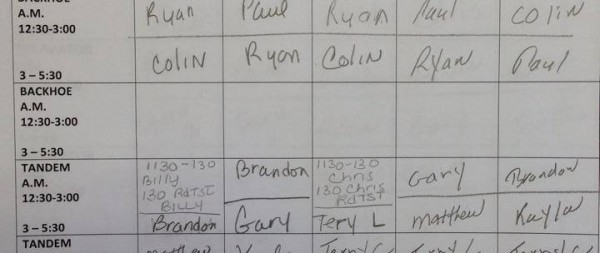 A.M. Ryan Paul Ryan Paul COLIN
12:30-3:00
3 – 5:30 COLIN Ryan Colin RYAN Paul
BACKHOE
A.M.
12:30-3:00
3 – 5:30
TANDEM 1130-130 Brandon 1130-130 Gary Brandon
A.M. Billy Chris
12:30-3:00 130 RdTST 130 Chris
BILLY RdTST
3 – 5:30 Brandon Gary Tery L matthew Kayla
TANDEM